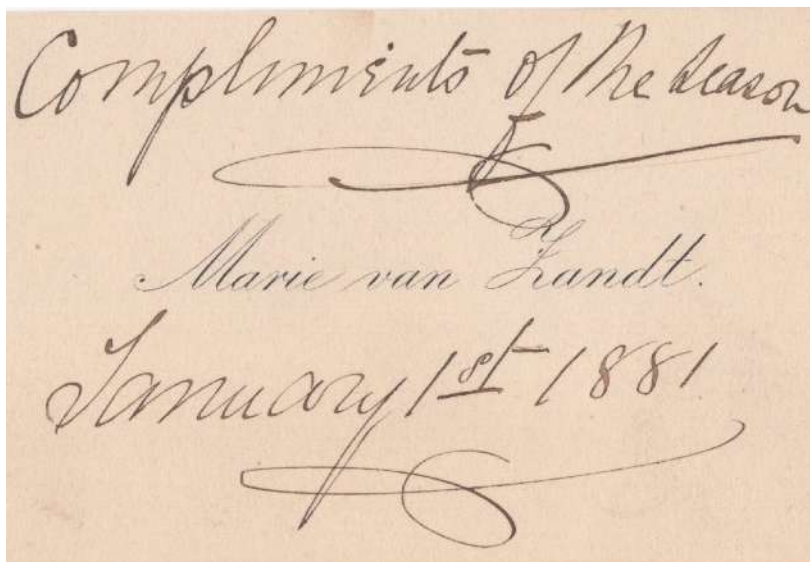 Compliments of the Season
Marie van Zandt.
January 1st 1881